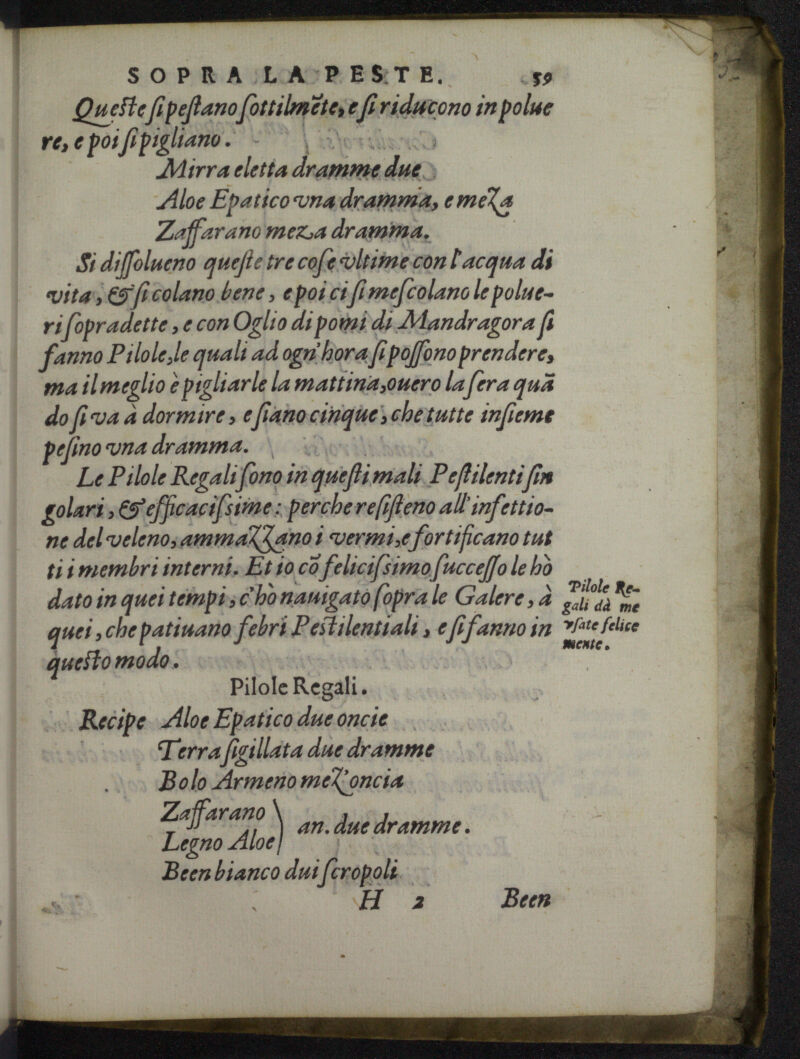 SOPRA LA PESTE. 59
Queste ſi peſtano ſottilmẽte, e ſi riducono in polue
re, e poi ſi pigliano.
Mirra eletta dramme due
Aloe Epatico vna dramma, e meza
Zaffarano meza dramma.
Si diſſolueno queſte tre coſe vltime con l'acqua di
vita, & ſi colano bene, e poi ci ſi meſcolano le polue-
ri ſopradette, e con Oglio di pomi di Mandragora ſi
fanno Pilole, le quali ad ogn'hora ſi poſſono prendere,
ma il meglio è pigliarle la mattina, ouero la ſera quã
do ſi va à dormire, e ſiano cinque, che tutte inſieme
peſino vna dramma.
Le Pilole Regali ſono in queſti mali Peſtilenti ſin
golari, & efficaciſsime: perche reſiſteno all'infettio-
ne del veleno, ammazzano i vermi, e fortificano tut
ti i membri interni. Et io cõ feliciſsimo ſucceſſo le hò
dato in quei tempi, c'hò nauigato ſopra le Galere, à
quei, che patiuano febri Peſtilentiali, e ſi fanno in
queſto modo.
Pilole Re-
gali dà me
vſate felice
mente.
Pilole Regali.
Recipe Aloe Epatico due oncie
Terra ſigillata due dramme
Bolo Armeno mez'oncia
Zaffarano
Legno Aloe } an. due dramme.
Been bianco dui ſcropoli
H 2 Been